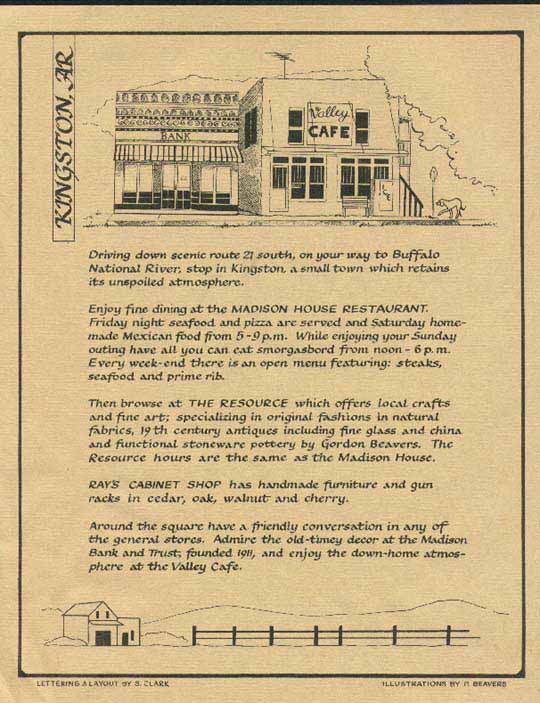 KINGSTON, AR
BANK
Valley
CAFE
ICE
Driving down scenic route 21 south, on your way to Buffalo
National River, stop in Kingston, a small town which retains
its unspoiled atmosphere.
Enjoy fine dining at the MADISON HOUSE RESTAURANT.
Friday night seafood and pizza are served and Saturday home-
made Mexican food from 5-9 p.m. While enjoying your Sunday
outing have all you can eat smorgasbord from noon - 6 p.m.
Every week-end there is an open menu featuring: steaks,
seafood and prime rib.
Then browse at THE RESOURCE which offers local crafts
and fine art; specializing in original fashions in natural
fabrics, 19th century antiques including fine glass and china
and functional stoneware pottery by Gordon Beavers. The
Resource hours are the same as the Madison House.
RAY'S CABINET SHOP has handmade furniture and gun
racks in cedar, oak, walnut and cherry.
Around the square have a friendly conversation in any of
the general stores. Admire the old-timey decor at the Madison
Bank and Trust, founded 1911, and enjoy the down-home atmos-
phere at the Valley Cafe.
LETTERING & LAYOUT BY S. CLARK
ILLUSTRATIONS BY BEAVERS